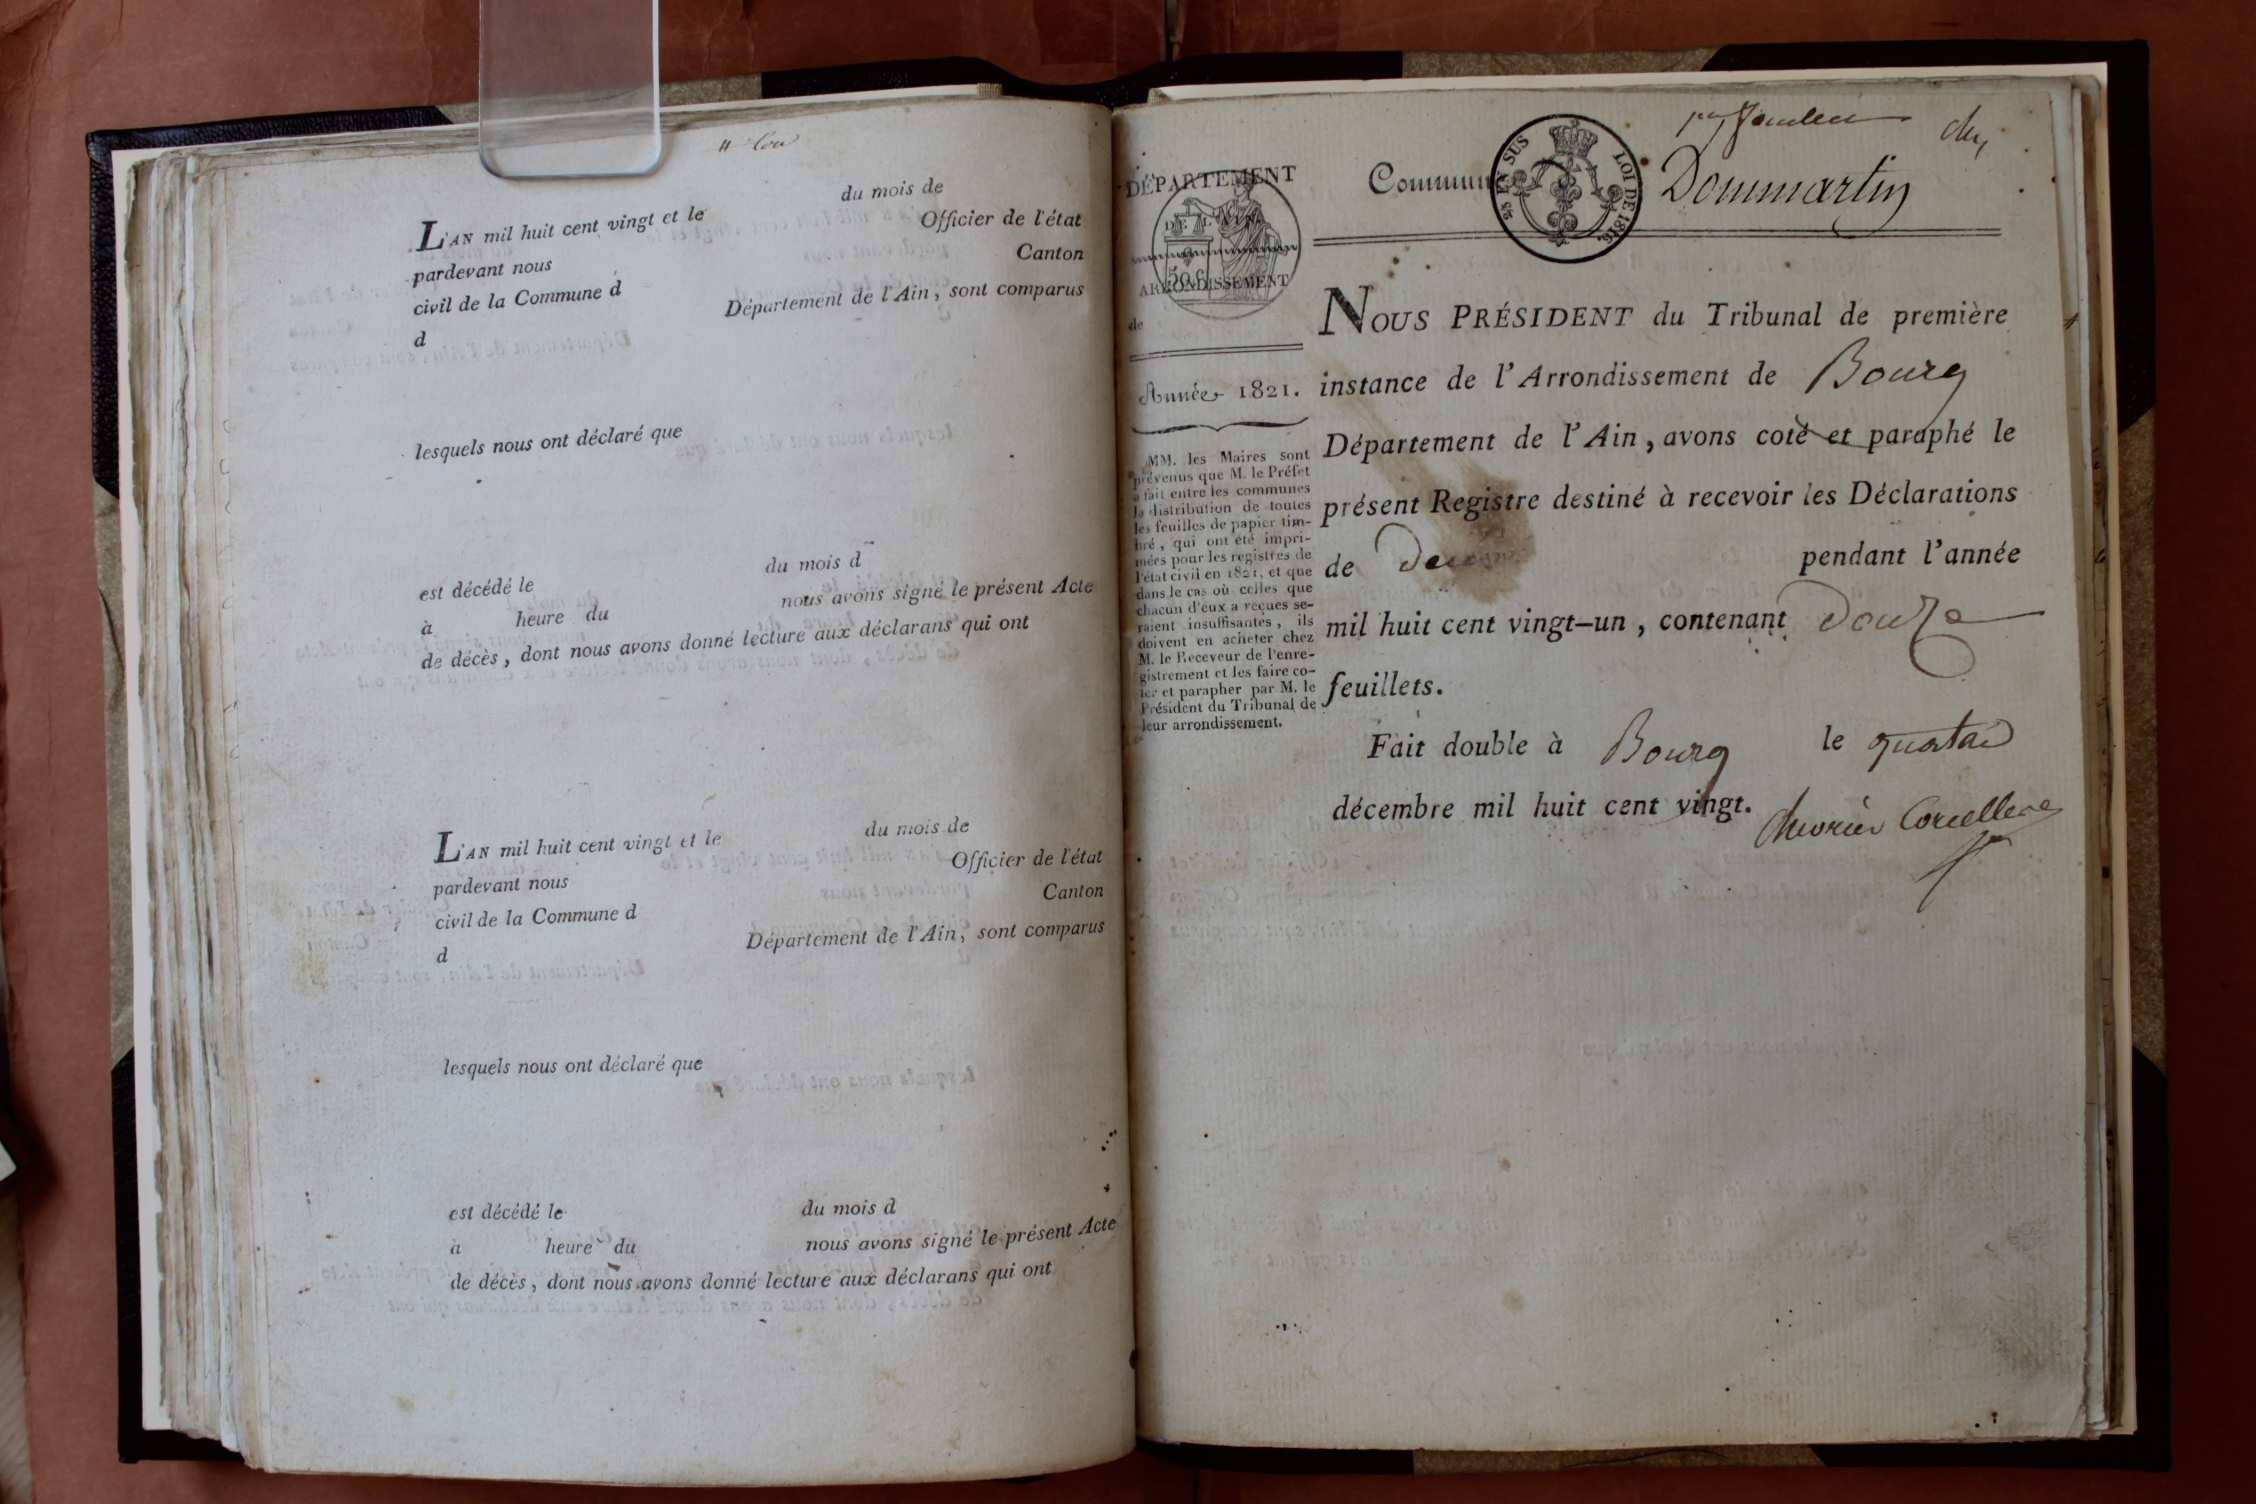 L'AN mil huit cent vingt et le du mois de
pardevant nous Officier de l'état
civil de la Commune d Canton
d Département de l'Ain, sont comparus
lesquels nous ont déclaré que
est décédé le du mois d
à heure du nous avons signé le présent Acte
de décès, dont nous avons donné lecture aux déclarans qui ont
L'AN mil huit cent vingt et le du mois de
pardevant nous Officier de l'état
civil de la Commune d Canton
d Département de l'Ain, sont comparus
lesquels nous ont déclaré que
est décédé le du mois d
à heure du nous avons signé le présent Acte
de décès, dont nous avons donné lecture aux déclarans qui ont
DÉPARTEMENT
DE L'AIN
50 c
ARRONDISSEMENT
de
Année 1821.
MM. les Maires sont
prévenus que M. le Préfet
a fait entre les communes
la distribution de toutes
les feuilles de papier tim-
bré, qui ont été impri-
mées pour les registres de
l'état civil en 1821, et que
dans le cas où celles que
chacun d'eux a reçues se-
raient insuffisantes, ils
doivent en acheter chez
M. le Receveur de l'enre-
gistrement et les faire co-
ter et parapher par M. le
Président du Tribunal de
leur arrondissement.
Commune Dommartin
EN SUS LOI DE 1816.
NOUS PRÉSIDENT du Tribunal de première
instance de l'Arrondissement de Bourg
Département de l'Ain, avons coté et paraphé le
présent Registre destiné à recevoir les Déclarations
de pendant l'année
mil huit cent vingt-un, contenant Douze
feuillets.
Fait double à Bourg le quatre
décembre mil huit cent vingt.